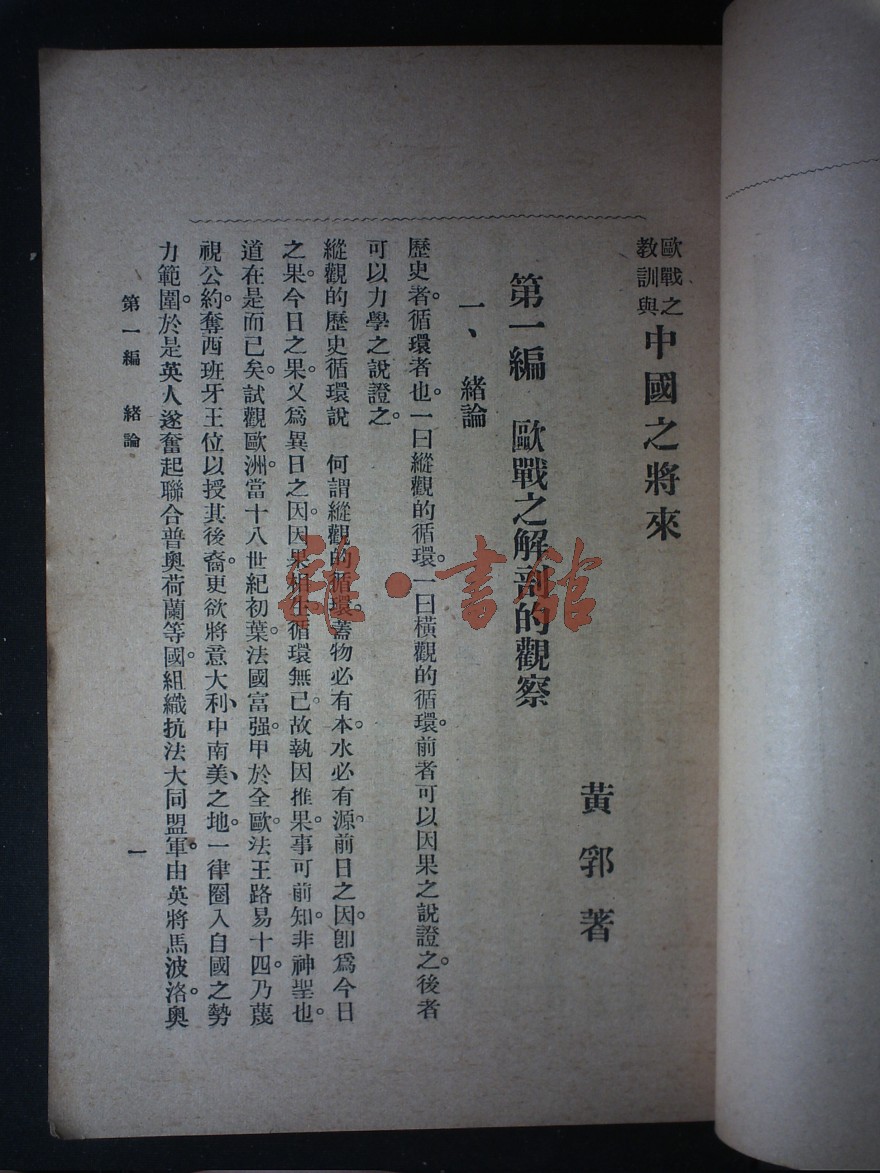 歐戰之
教訓與
中國之將來
黃郛著
第一編 歐戰之解剖的觀察
一、緒論
歷史者。循環者也。一曰縱觀的循環。一曰橫觀的循環。前者可以因果之說證之。後者
可以力學之說證之。
縱觀的歷史循環說 何謂縱觀的循環。蓋物必有本。水必有源。前日之因。卽爲今日
之果。今日之果。又爲異日之因。因果相生。循環無已。故執因推果。事可前知。非神聖也。
道在是而已矣。試觀歐洲。當十八世紀初葉。法國富强。甲於全歐。法王路易十四。乃蔑
視公約。奪西班牙王位以授其後裔。更欲將意大利、中南美、之地。一律圈入自國之勢
力範圍。於是英人遂奮起聯合普奧荷蘭等國。組織抗法大同盟軍。由英將馬波洛。奧
第一編 緒論
一
書館